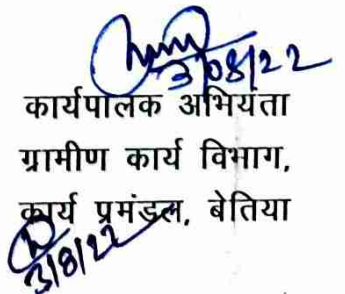 3/08/22
कार्यपालक अभियंता
ग्रामीण कार्य विभाग,
कार्य प्रमंडल, बेतिया
3/8/22